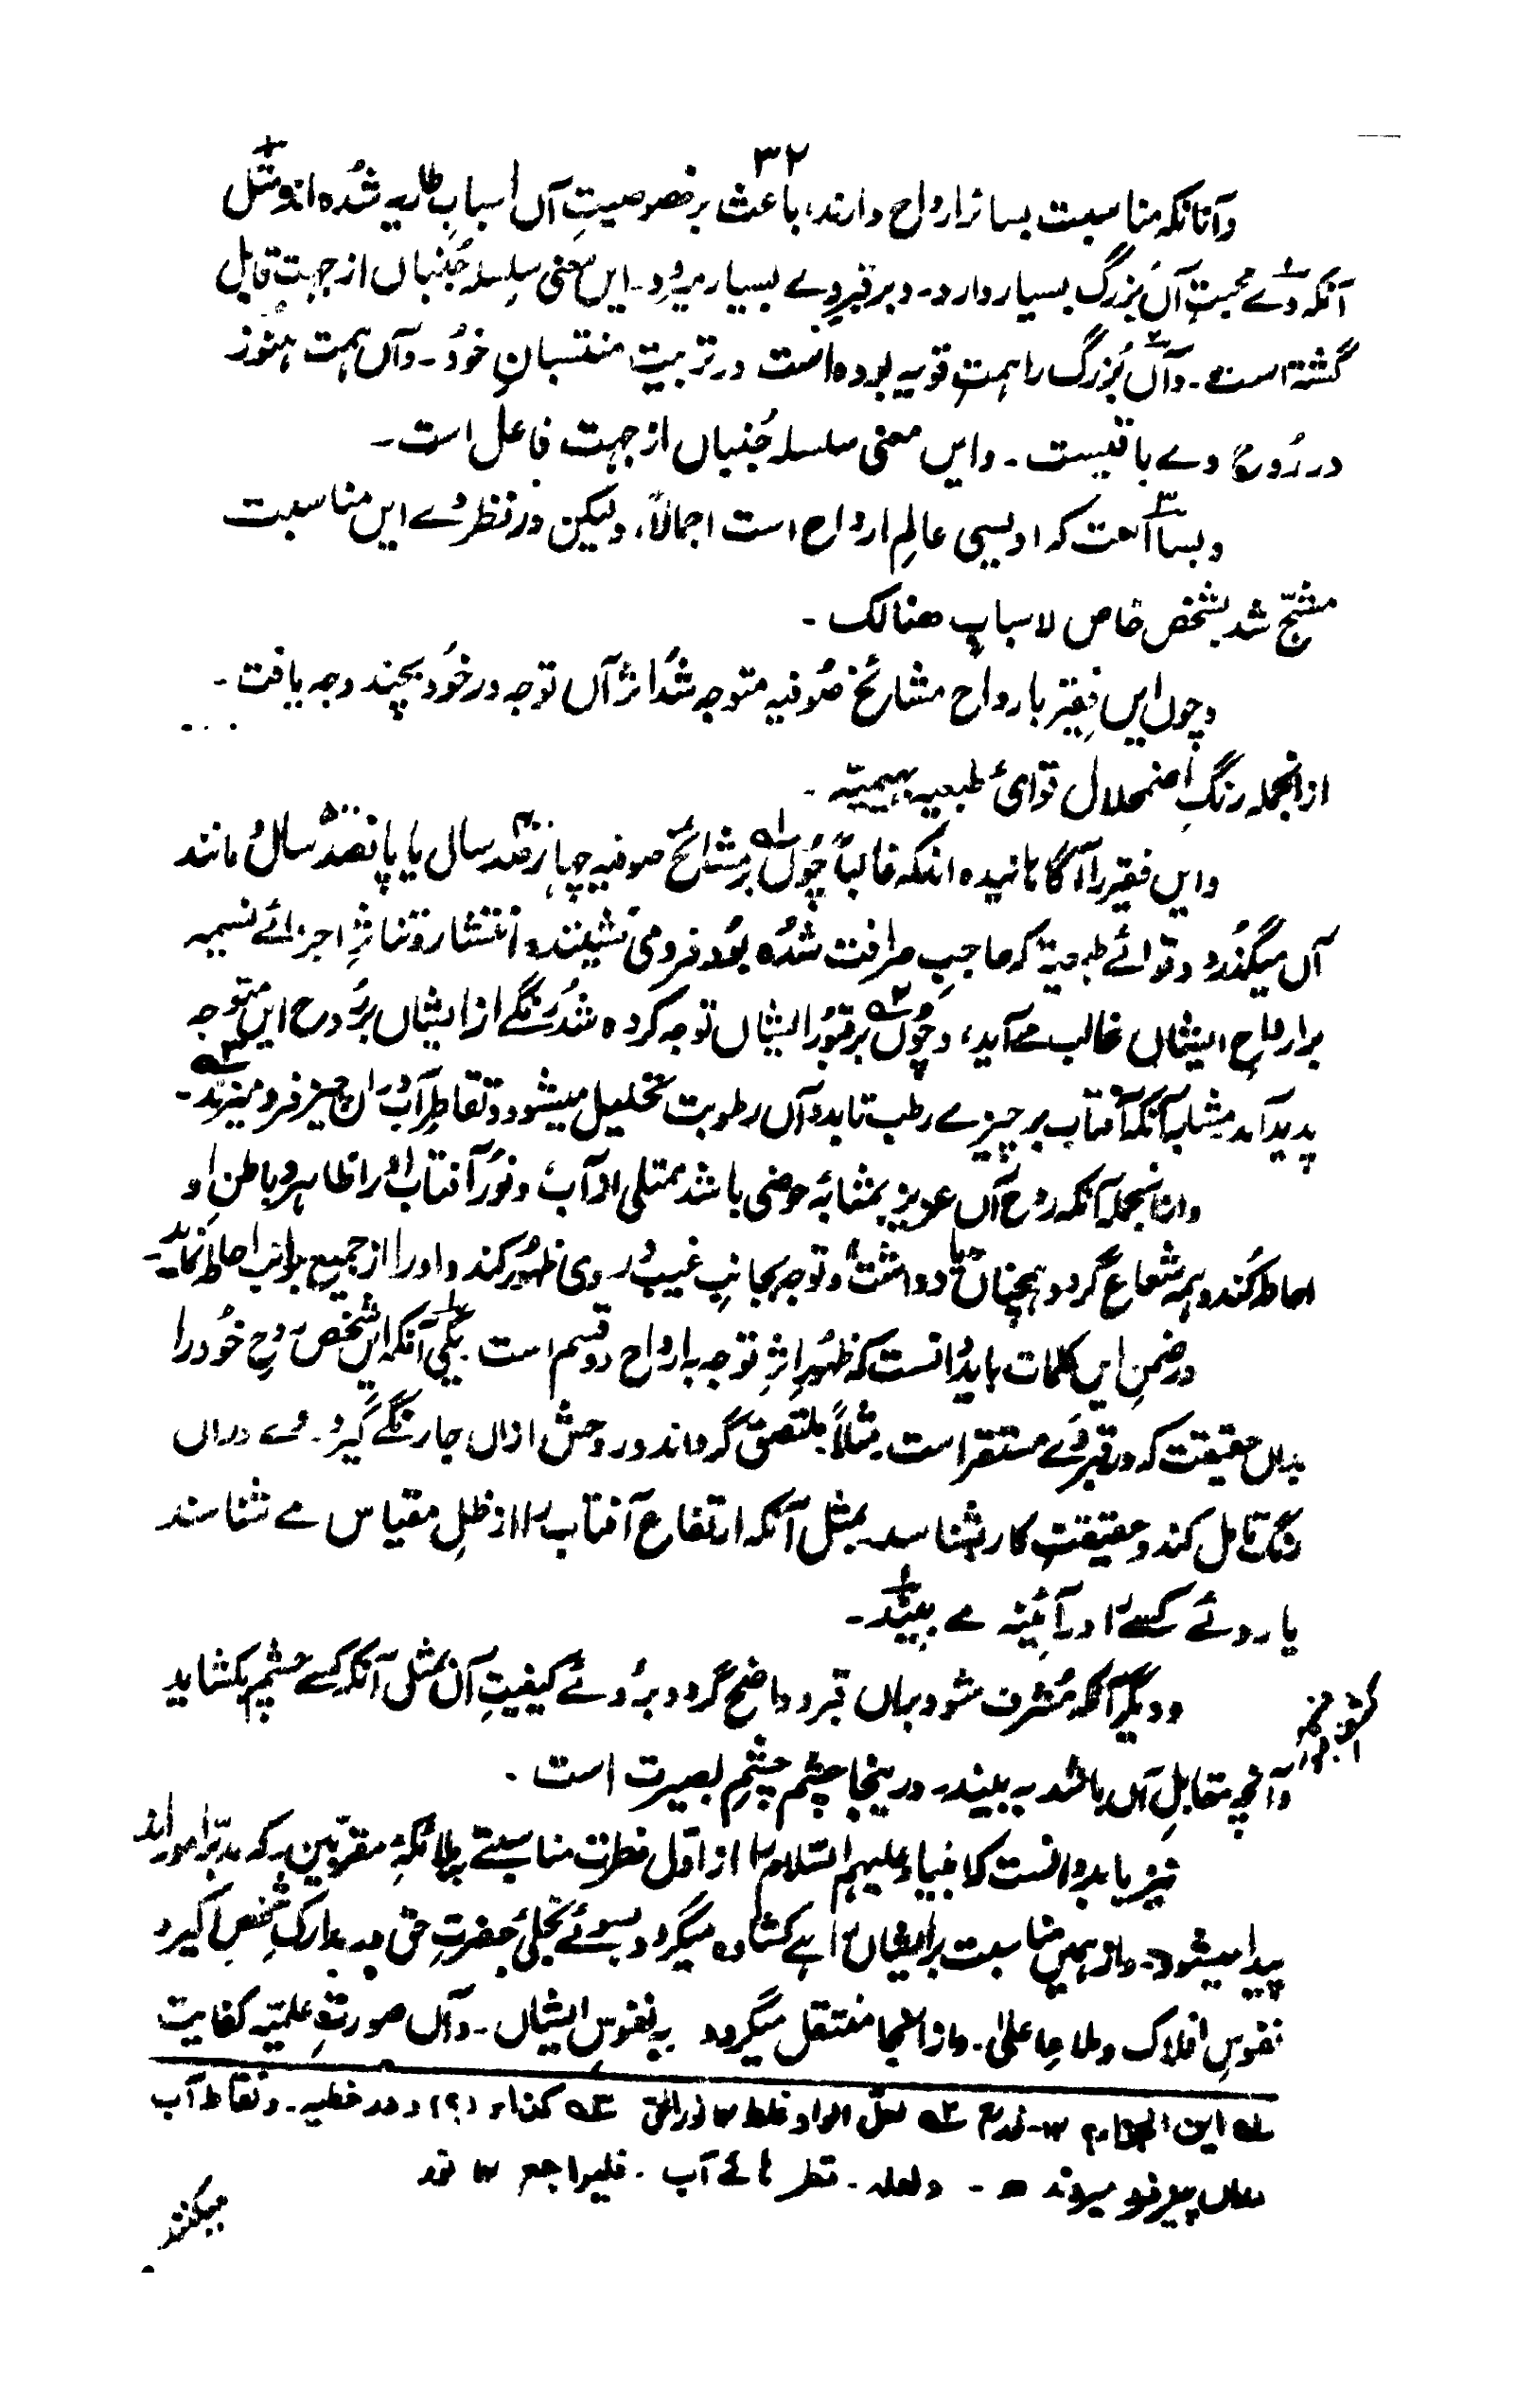 ۳۲
وآنانکه مناسبت بسائر ارواح دارند، باعث بر خصوصیتِ آں اسبابِ طاریہ شُدہ اند مثل
آنکہ وے محبتِ آں بُزرگ بسیار دارد۔ و بر قبرِ وے بسیار میرود۔ ایں معنی سِلسلہ جُنباں از جہتِ قابل
گشتہ است۔ وآں بُزرگ را ہمتِ قویہ بودہ است در تربیتِ منتسبانِ خود۔ وآں ہمت ہنُوز
در رُوح وے باقیست۔ وایں معنی سلسلہ جُنباں از جہت فاعل است۔
وبسا است کہ اویسی عالمِ ارواح است اجمالاً، ولیکن در نظرِ وے ایں مناسبت
مشبّح شد بشخص خاص لاسبابٍ ھنالک۔
وچوں ایں فقیر بارواح مشائخ صُوفیہ متوجہ شُد اثر آں توجہ در خُود بچند وجہ یافت۔
ازانجملہ رنگِ اضمحلال قوائ طبعیہ بہیمیّہ۔
وایں فقیر را آگاہانیدہ اند کہ غالباً چُوں بر مشائخ صوفیہ چہار صد سال یا پانصد سال مانند
آں میگذرد و قوائے طبعیہ کہ حاجبِ صرافت شُدہ بود فرو می نشینند، انتشار و تناثرِ اجزائے نسمیہ
بر ارواحِ ایشاں غالب مے آید، و چُوں بر قبُور ایشاں توجہ کردہ شد رنگے از ایشاں بر رُوح ایں متوجہ
پدید آمد مشابہ آنکہ آفتاب بر چیزے رطب تابد و آں رطوبت تحلیل میشود و تقاطرِ آب ازاں چیز فرو میریزد۔
وازانجملہ آنکہ رُوح آں عزیز بمثابۂ حوضی باشد ممتلی از آب، و نُور آفتاب اُو را ظاہر و باطنِ او
احاطہ کُند و ہمہ شعاع گردد ہمچناں یاد داشت و توجہ بجانبِ غیب در وی ظہُور کند و او را از جمیع جوانب احاطہ نماید۔
در ضمنِ ایں کلمات باید دانست کہ ظہُورِ اثرِ توجہ بارواح دو قسم است یکی آنکہ ایں شخص رُوحِ خُود را
بداں حقیقت کہ در قبرِ وے مستقر است مثلاً ملتصق گرداند و روحش ازاں جا رنگے گیرد۔ وے دراں
رنگ تامل کند و حقیقتِ کار بشناسد۔ بمثل آنکہ ارتفاعِ آفتاب را از ظلِ مقیاس مے شناسند
یا روئے کسے را در آئینہ مے بینند۔
ودیگر آنکہ مُشرف شود براں قبر و واضح گردد بر وے کیفیتِ آں بمثل آنکہ کسے چشم بکشاید
وآنچہ مقابلِ آں باشد بہ بیند۔ و درینجا چشم چشمِ بصیرت است۔
نیز باید دانست کہ انبیاء علیہم السّلام را از اوّل فطرت مناسبتے بہ ملائکۂ مقربین کہ مدبّر امور اند
پیدا میشود۔ واز ہمیں مناسبت بر ایشاں راہے کشادہ میگردد بسوئے تجلئ حضرتِ حق در مدارکِ شخصِ اکبر و
نفوسِ افلاک و ملاءِ اعلیٰ۔ و از انجا منتقل میگردد بہ نفوسِ ایشاں۔ وآں صورتِ علمیّہ کفایت
لعلّ الواو غلط ۱۲ نور الحق ۳ کذا (؟) و در خطیہ۔ و نقاط آب
ازاں چیز فرو میروند۔ ولعلہ۔ قطرہائے آب۔ فلیراجع ۱۲ نور
میکند